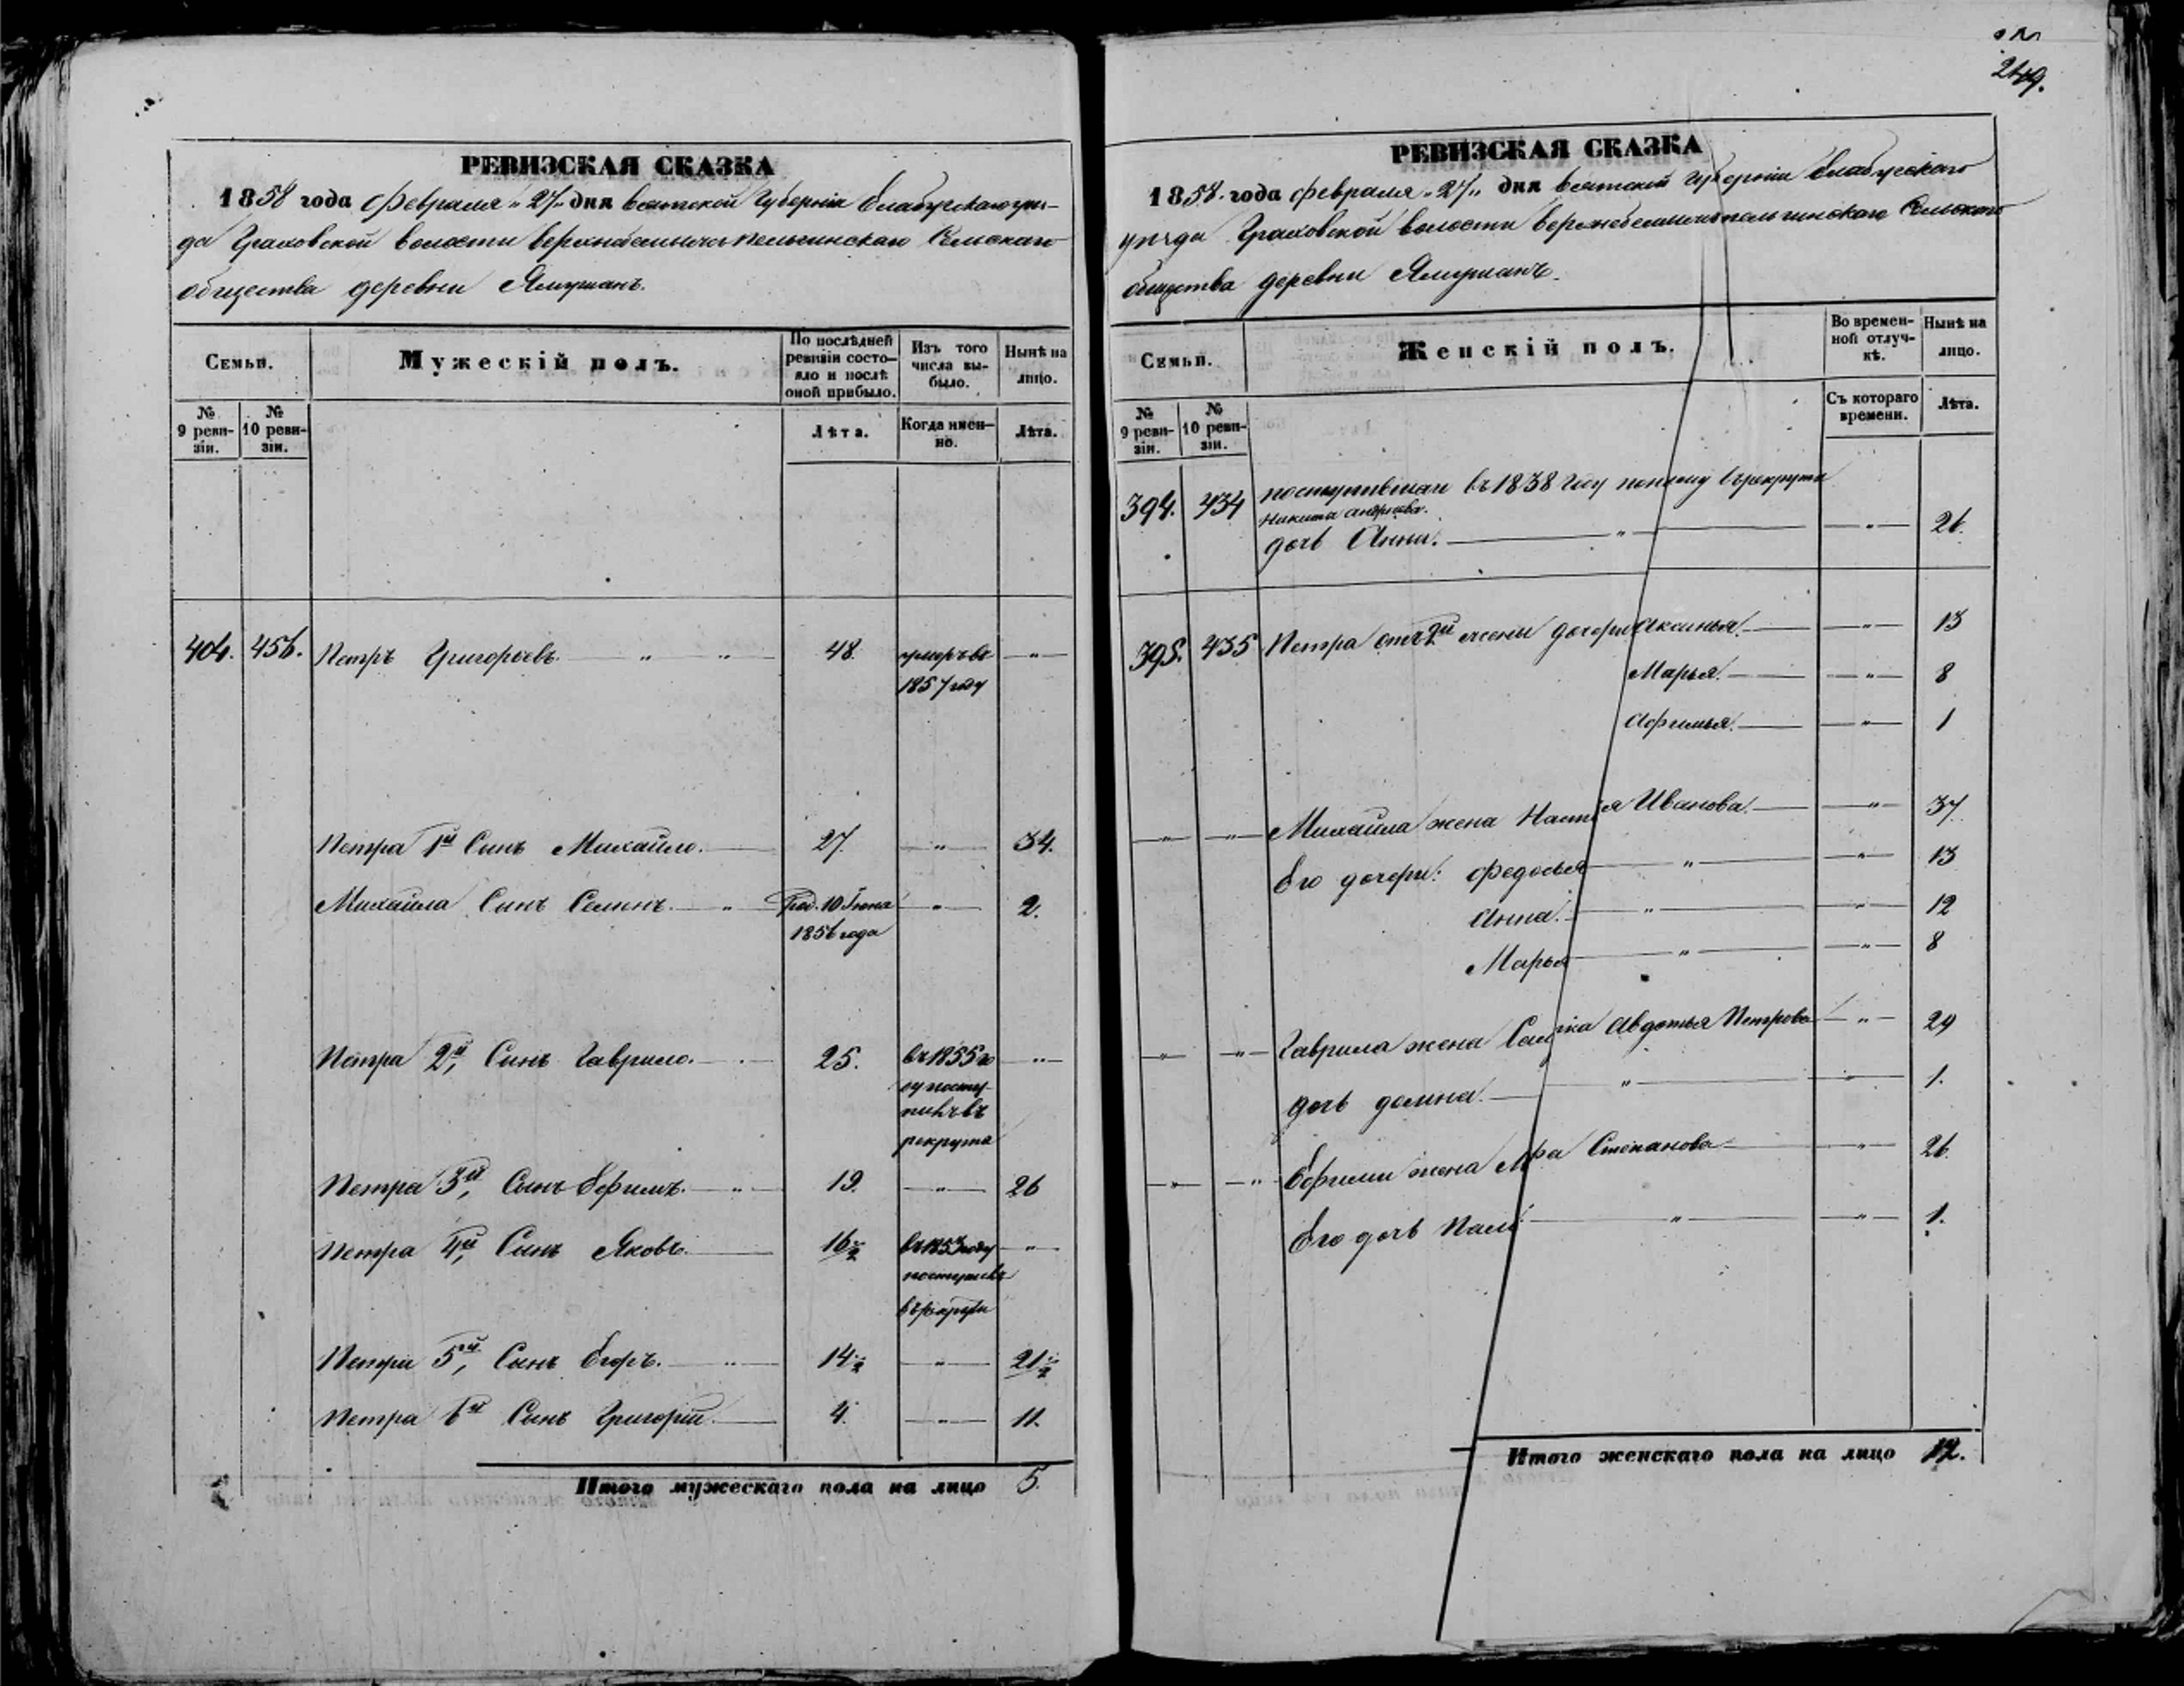 249.
РЕВИЗСКАЯ СКАЗКА
1858 года февраля "27" дня вятской Губернiи Елабугскаго уѣз-
да Граховской волости сельскаго
общества деревни Ямурзанъ.
Семьи.
Мужескiй полъ.
По послѣдней ревизiи состояло и послѣ оной прибыло.
Изъ того числа выбыло.
Нынѣ на лицо.
№ 9 ревизiи.
№ 10 ревизiи.
Лѣта.
Когда именно.
Лѣта.
404. 456. Петръ Григорьевъ. " " 48. умеръ въ "
1857 году
Петра 1й Сынъ Михайло. 27. " 34.
Михайла Сынъ Семенъ. " Род. 10 Iюня " 2.
1856 года
Петра 2й, Сынъ Гаврило. 25. въ 1855 го "
ду посту-
пилъ въ
рекрута
Петра 3й, Сынъ Ефимъ. " 19. " 26
Петра 4й, Сынъ Яковъ. 16½ въ 1853 году "
поступилъ
въ рекрута
Петра 5й, Сынъ Егоръ. " 14½ " 21½
Петра 6й Сынъ Григорiй. 4. " 11.
Итого мужескаго пола на лицо 5.
РЕВИЗСКАЯ СКАЗКА
1858. года февраля "27" дня вятской губернiи Елабугскаго
уѣзда Граховской волости сельскаго
общества деревни Ямурзанъ.
Семьи.
Женскiй полъ.
Во временной отлучкѣ.
Нынѣ на лицо.
№ 9 ревизiи.
№ 10 ревизiи.
Съ котораго времени.
Лѣта.
394. 434 поступившаго въ 1838 году въ рекрута
Никиты Андреева.
дочь Анна. " " 26.
395. 435 Петра отъ 2й жены дочери Аксинья. " 13
Марья. " 8
Афимья. " 1
" " Михайла жена Иванова. " 37
Его дочери: Федосья " " 13
Анна. " " 12
Марья " " 8
" " Гаврила жена Авдотья Петрова " 29
дочь домна. " " 1.
" " Ефима жена Степанова " 26.
Его дочь " " 1.
Итого женскаго пола на лицо 12.